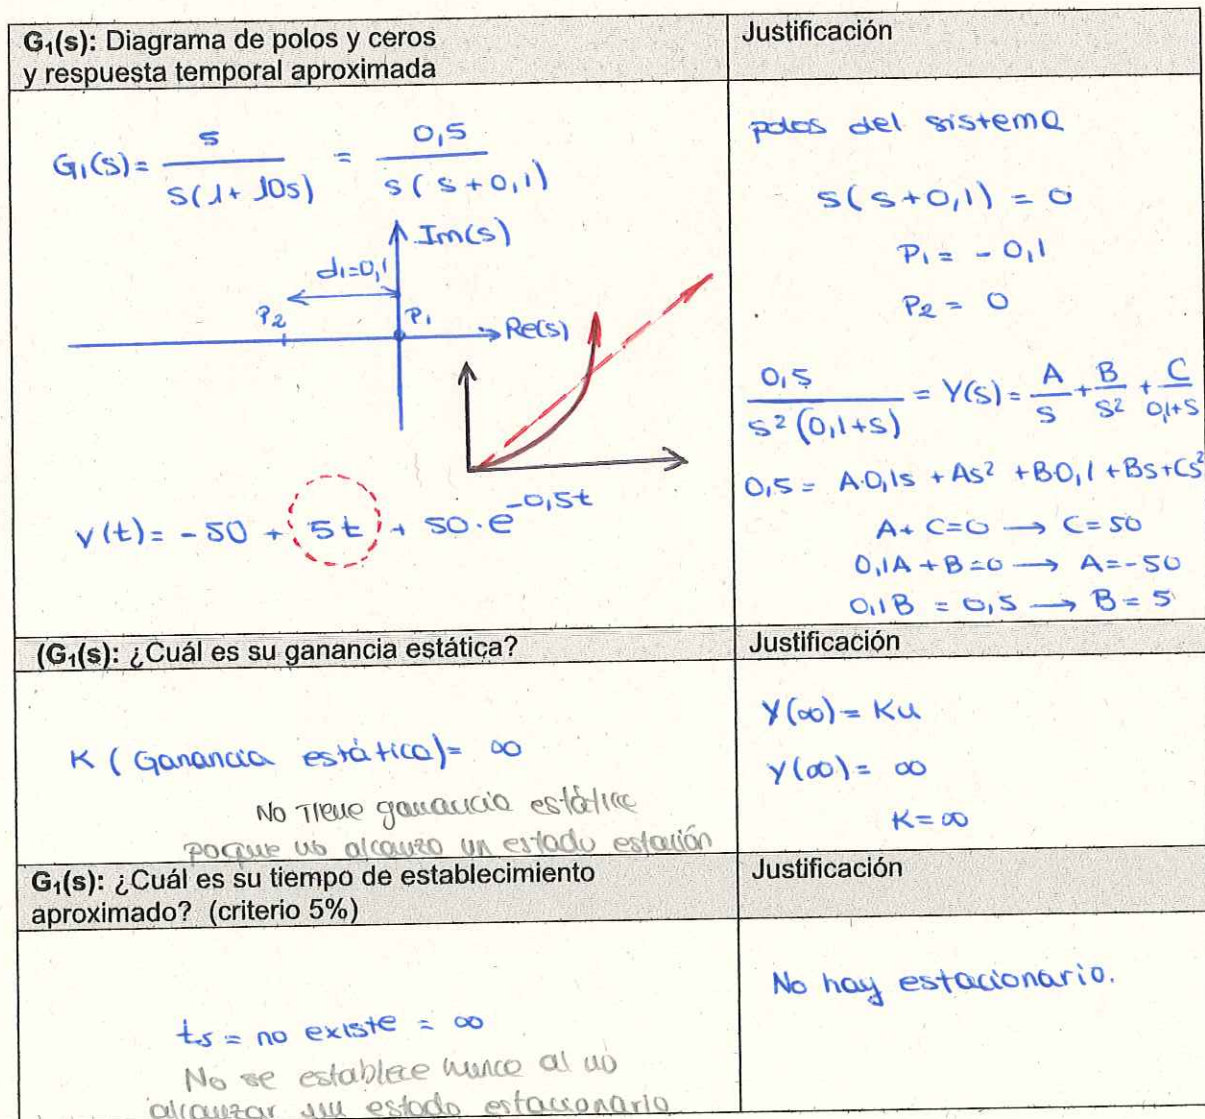 G₁(s): Diagrama de polos y ceros
y respuesta temporal aproximada
Justificación
G₁(s)= 5/(s(1+10s)) = 0,5/(s(s+0,1))
Im(s)
d₁=0,1
P₂
P₁
Re(s)
y(t)= -50 + 5t + 50·e^(-0,5t)
polos del sistema
s(s+0,1) = 0
P₁ = -0,1
P₂ = 0
0,5/(s²(0,1+s)) = Y(s) = A/s + B/s² + C/(0,1+s)
0,5 = A·0,1s + As² + B0,1 + Bs + Cs²
A + C=0 → C=50
0,1A + B=0 → A=-50
0,1B = 0,5 → B=5
(G₁(s): ¿Cuál es su ganancia estática?
Justificación
K (Ganancia estática)= ∞
No Tiene ganancia estática
porque no alcanza un estado estación
Y(∞) = Ku
Y(∞) = ∞
K=∞
G₁(s): ¿Cuál es su tiempo de establecimiento
aproximado? (criterio 5%)
Justificación
ts = no existe = ∞
No se establece nunca al no
alcanzar un estado estacionario
No hay estacionario.